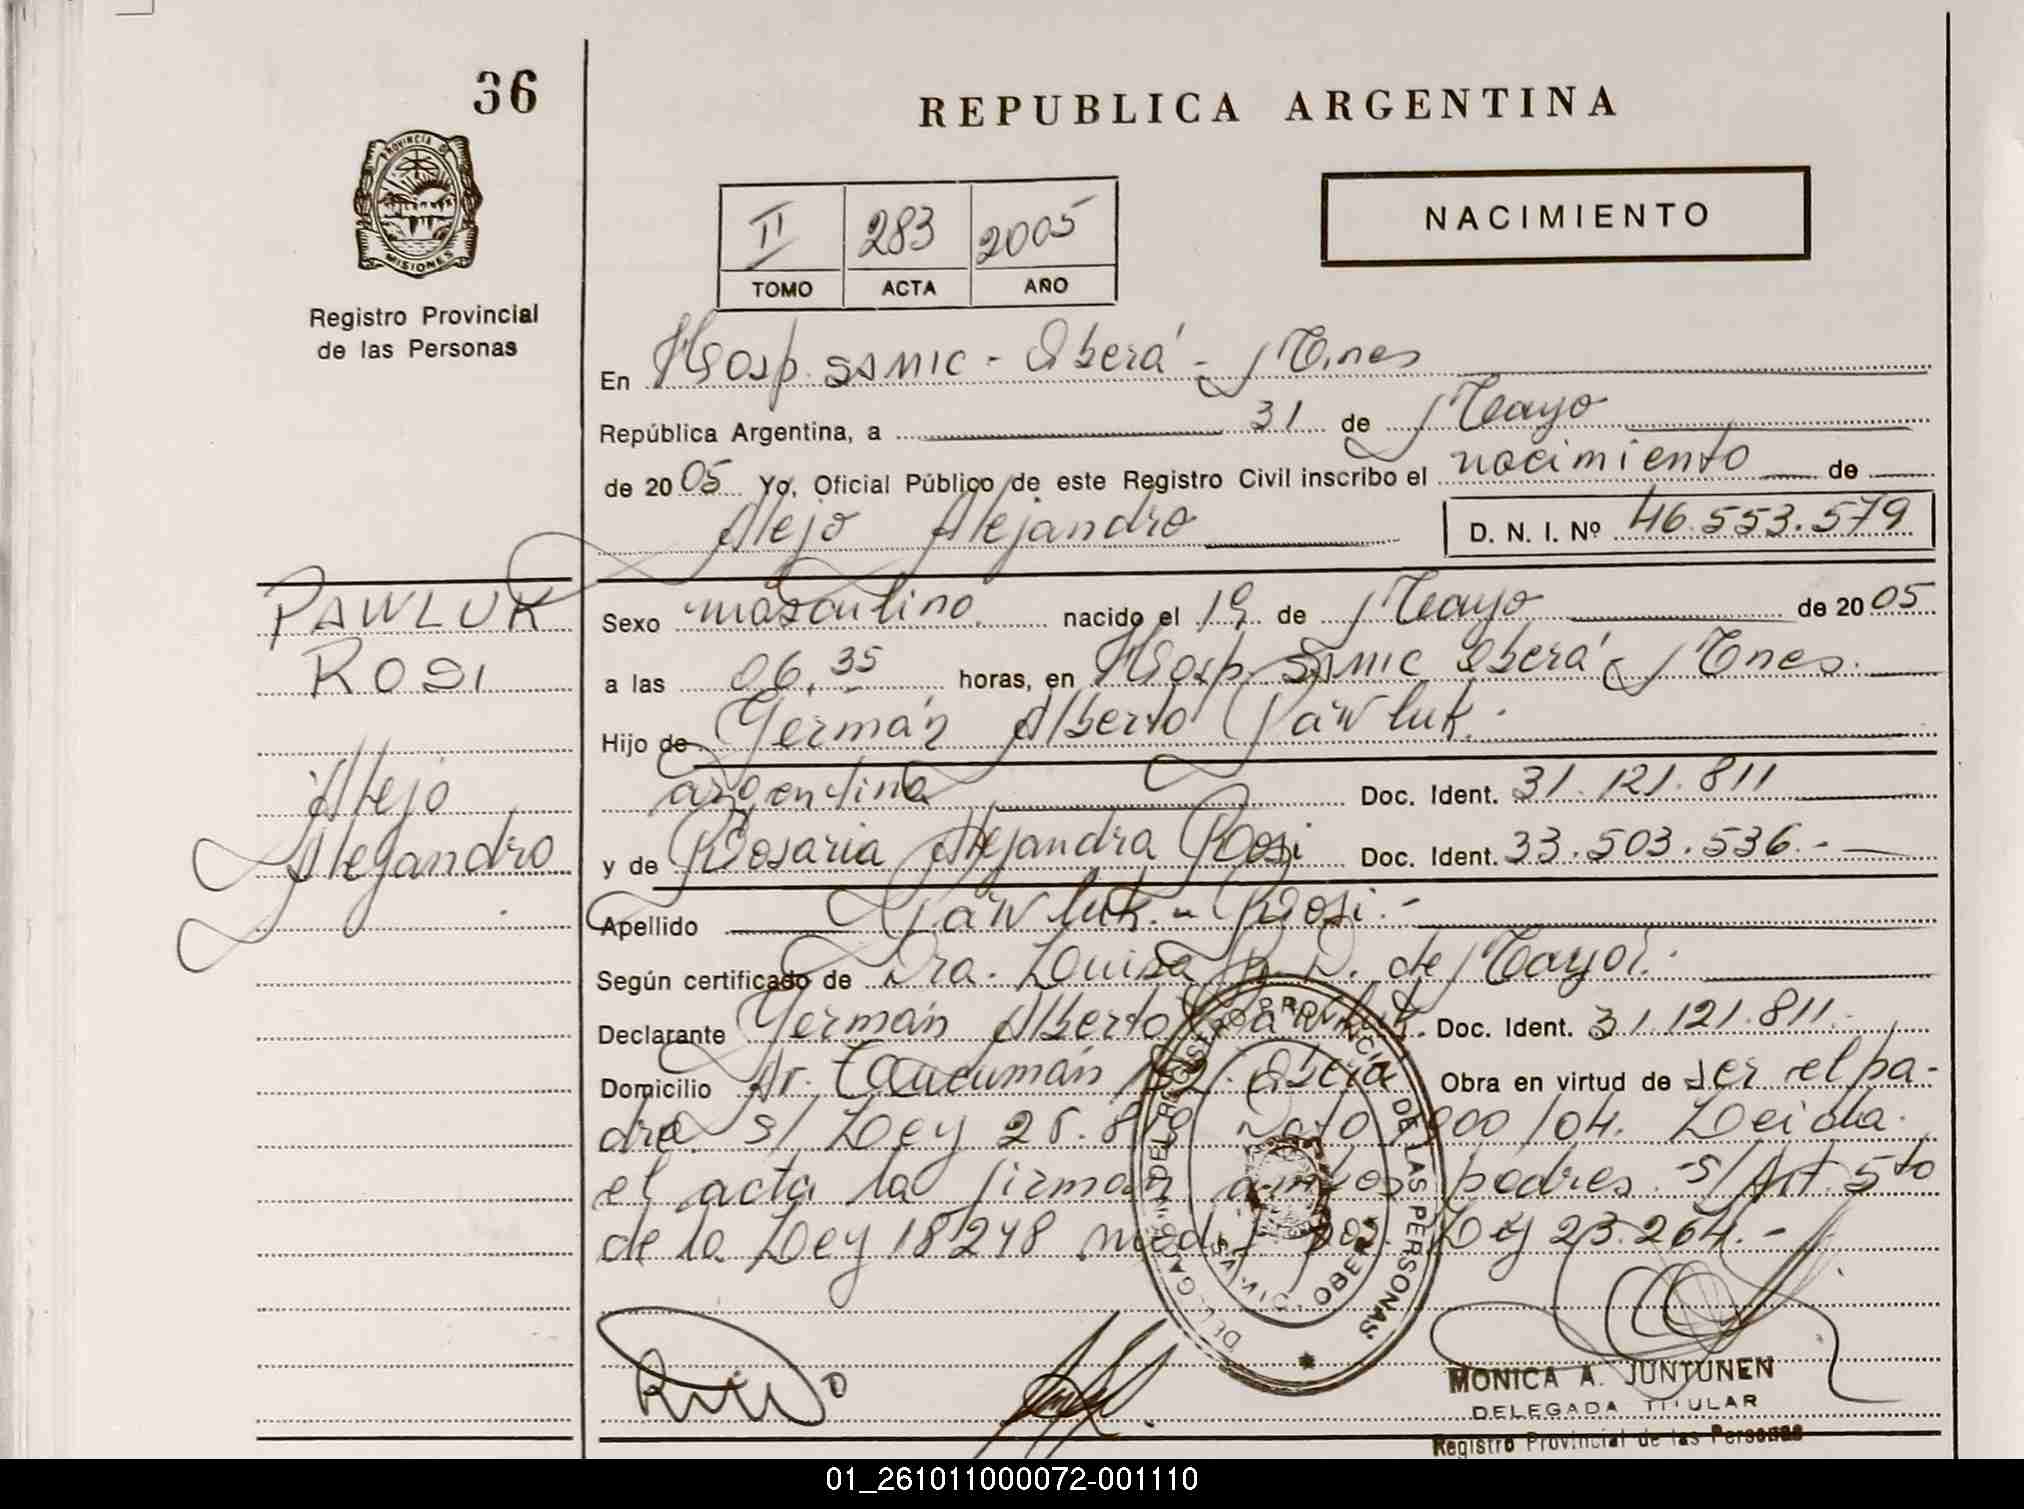 36
REPUBLICA ARGENTINA
PROVINCIA DE
MISIONES
Registro Provincial
de las Personas
II 283 2005
TOMO ACTA AÑO
NACIMIENTO
En Hosp. SAMIC - Oberá - Mnes
República Argentina, a 31 de Mayo
de 2005 Yo, Oficial Público de este Registro Civil inscribo el nacimiento de
Alejo Alejandro D. N. I. Nº 46.553.579
PAWLUK
ROSI
Alejo
Alejandro
Sexo masculino nacido el 19 de Mayo de 2005
a las 06.35 horas, en Hosp. SAMIC Oberá Mnes.
Hijo de Germán Alberto Pawluk.
argentina Doc. Ident. 31.121.811
y de Rosaria Alejandra Rosi Doc. Ident. 33.503.536.-
Apellido Pawluk.- Rosi.-
Según certificado de Dra. Louisa D. de Mayor.
Declarante Germán Alberto Pawluk. Doc. Ident. 31.121.811.-
Domicilio Av. Tucumán Oberá Obra en virtud de ser el pa-
dre s/ Ley 25.819 Dto 1000/04. Leida
el acta la firman ambos padres s/Art. 5to
de la Ley 18248 modif. por Ley 23.264.-
DELEGA DEL REGISTRO PROVINCIAL DE LAS PERSONAS
OBERA
MONICA A. JUNTUNEN
DELEGADA TITULAR
Registro Provincial de las Personas
01_261011000072-001110